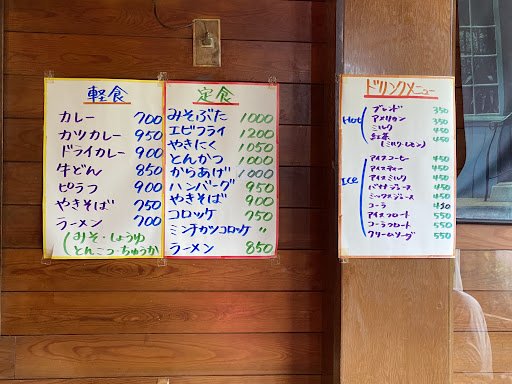 軽食
カレー 700
カツカレー 950
ドライカレー 900
牛どん 850
ピラフ 900
やきそば 750
ラーメン 700
(みそ・しょうゆ
とんこつ・ちゅうか)
定食
みそぶた 1000
エビフライ 1200
やきにく 1050
とんかつ 1000
からあげ 1000
ハンバーグ 950
やきそば 900
コロッケ 750
ミンチカツコロッケ 〃
ラーメン 850
ドリンクメニュー
Hot
ブレンド 350
アメリカン 350
ミルク 450
紅茶 450
(ミルク・レモン)
Ice
アイスコーヒー 450
アイスティー 450
アイスミルク 450
バナナジュース 450
ミックスジュース 450
コーラ
アイスフロート 550
コーラフロート 550
クリームソーダ 550